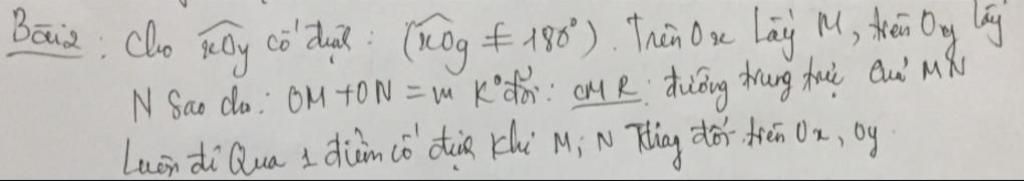 Bài 2: Cho xOy cố định: (xOy ≠ 180°). Trên Ox lấy M, trên Oy lấy
N sao cho: OM + ON = m k° đổi: CMR: đường trung trực của MN
Luôn đi Qua 1 điểm cố định khi M, N thay đổi trên Ox, Oy